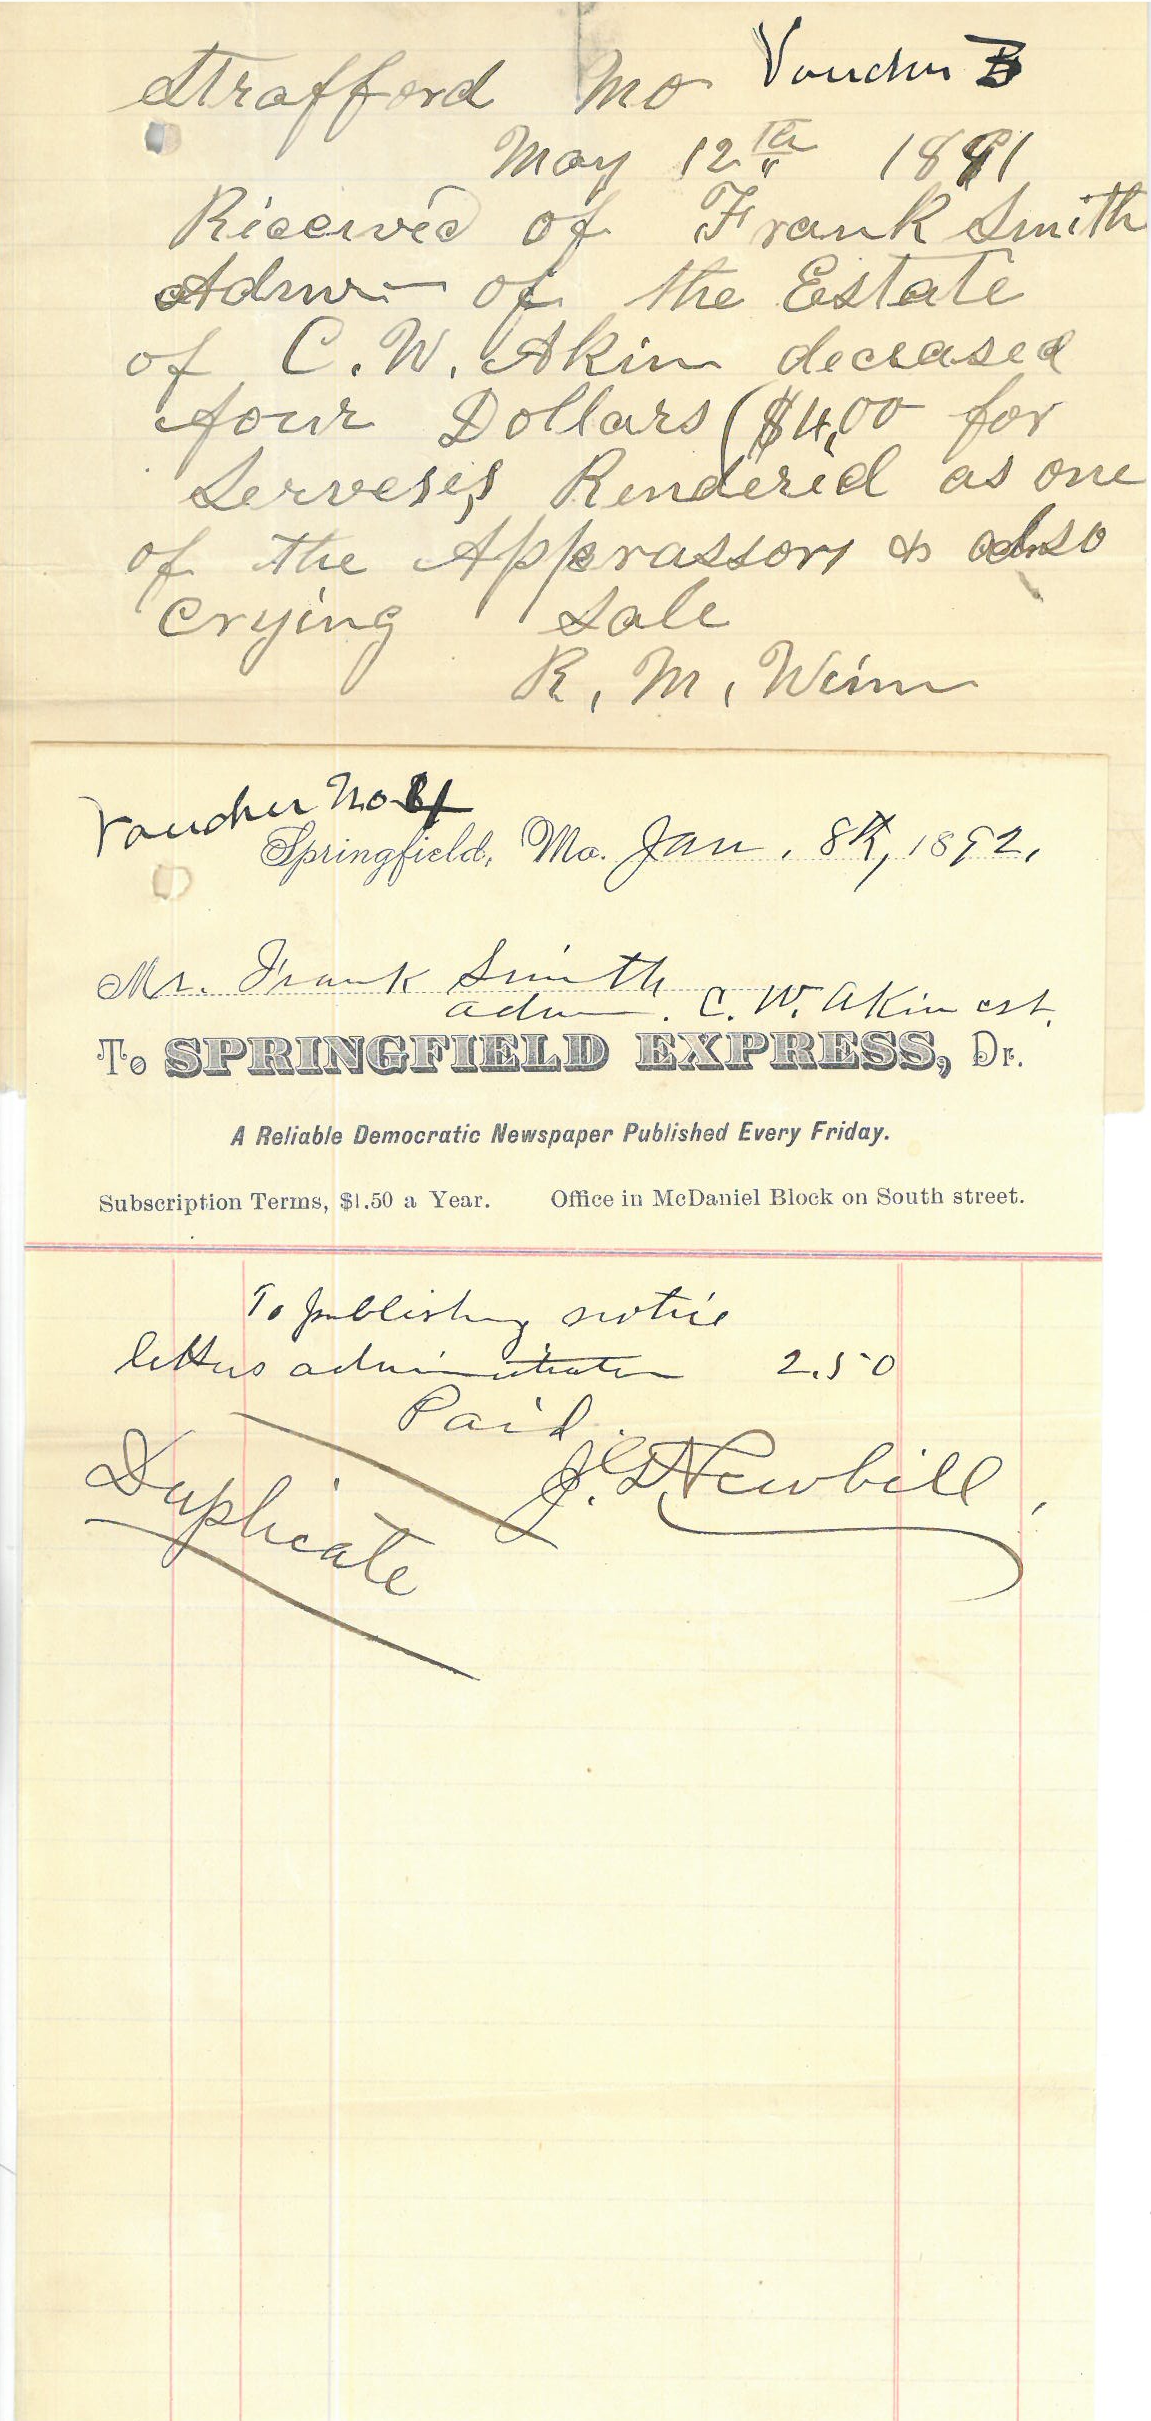 Strafford Mo Voucher
May 12th 1891
Riceived of Frank Smith
Admr of the Estate
of C. W. Akin deceased
four Dollars ($4.00 for
Serveses Rendered as one
of the Apprassors & also
Crying Sale
R. M. Winn
Voucher No
Springfield, Mo. Jan. 8th, 1892.
Mr. Frank Smith
adm. C. W. Akin est.
To SPRINGFIELD EXPRESS, Dr.
A Reliable Democratic Newspaper Published Every Friday.
Subscription Terms, $1.50 a Year. Office in McDaniel Block on South street.
To publishing notice
letters administration 2.50
Paid.
J. G. Newbill,
Duplicate